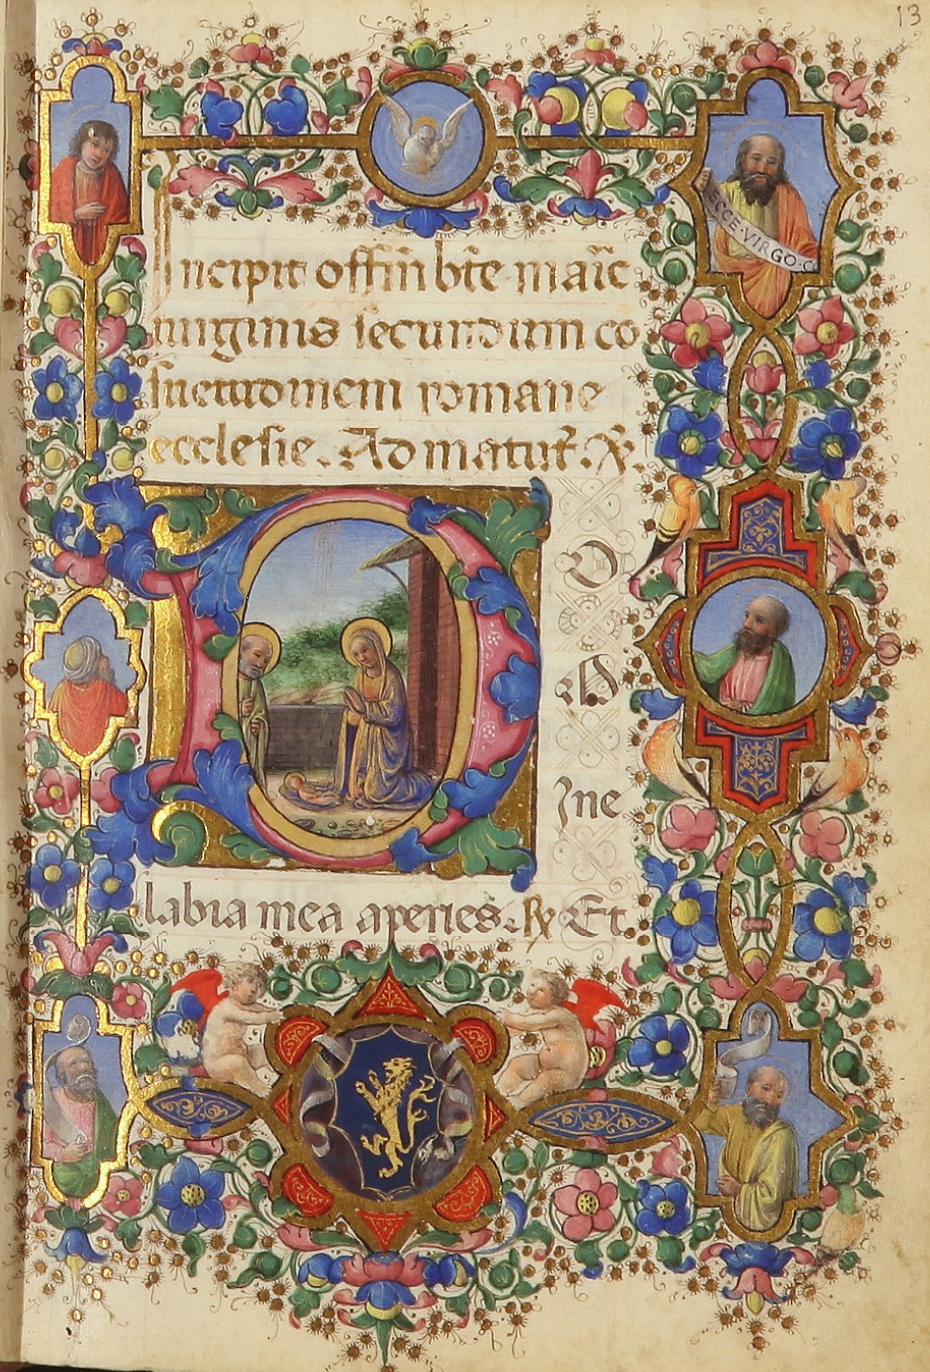 13
ECCE·VIRGO·C
Incipit offin̄ bt̄e maīc
uirginis secundum co
suetudinem romane
ecclesie. Ad matut̄. ℣.
D
O
M
ine
labia mea aperies. ℟ Et.